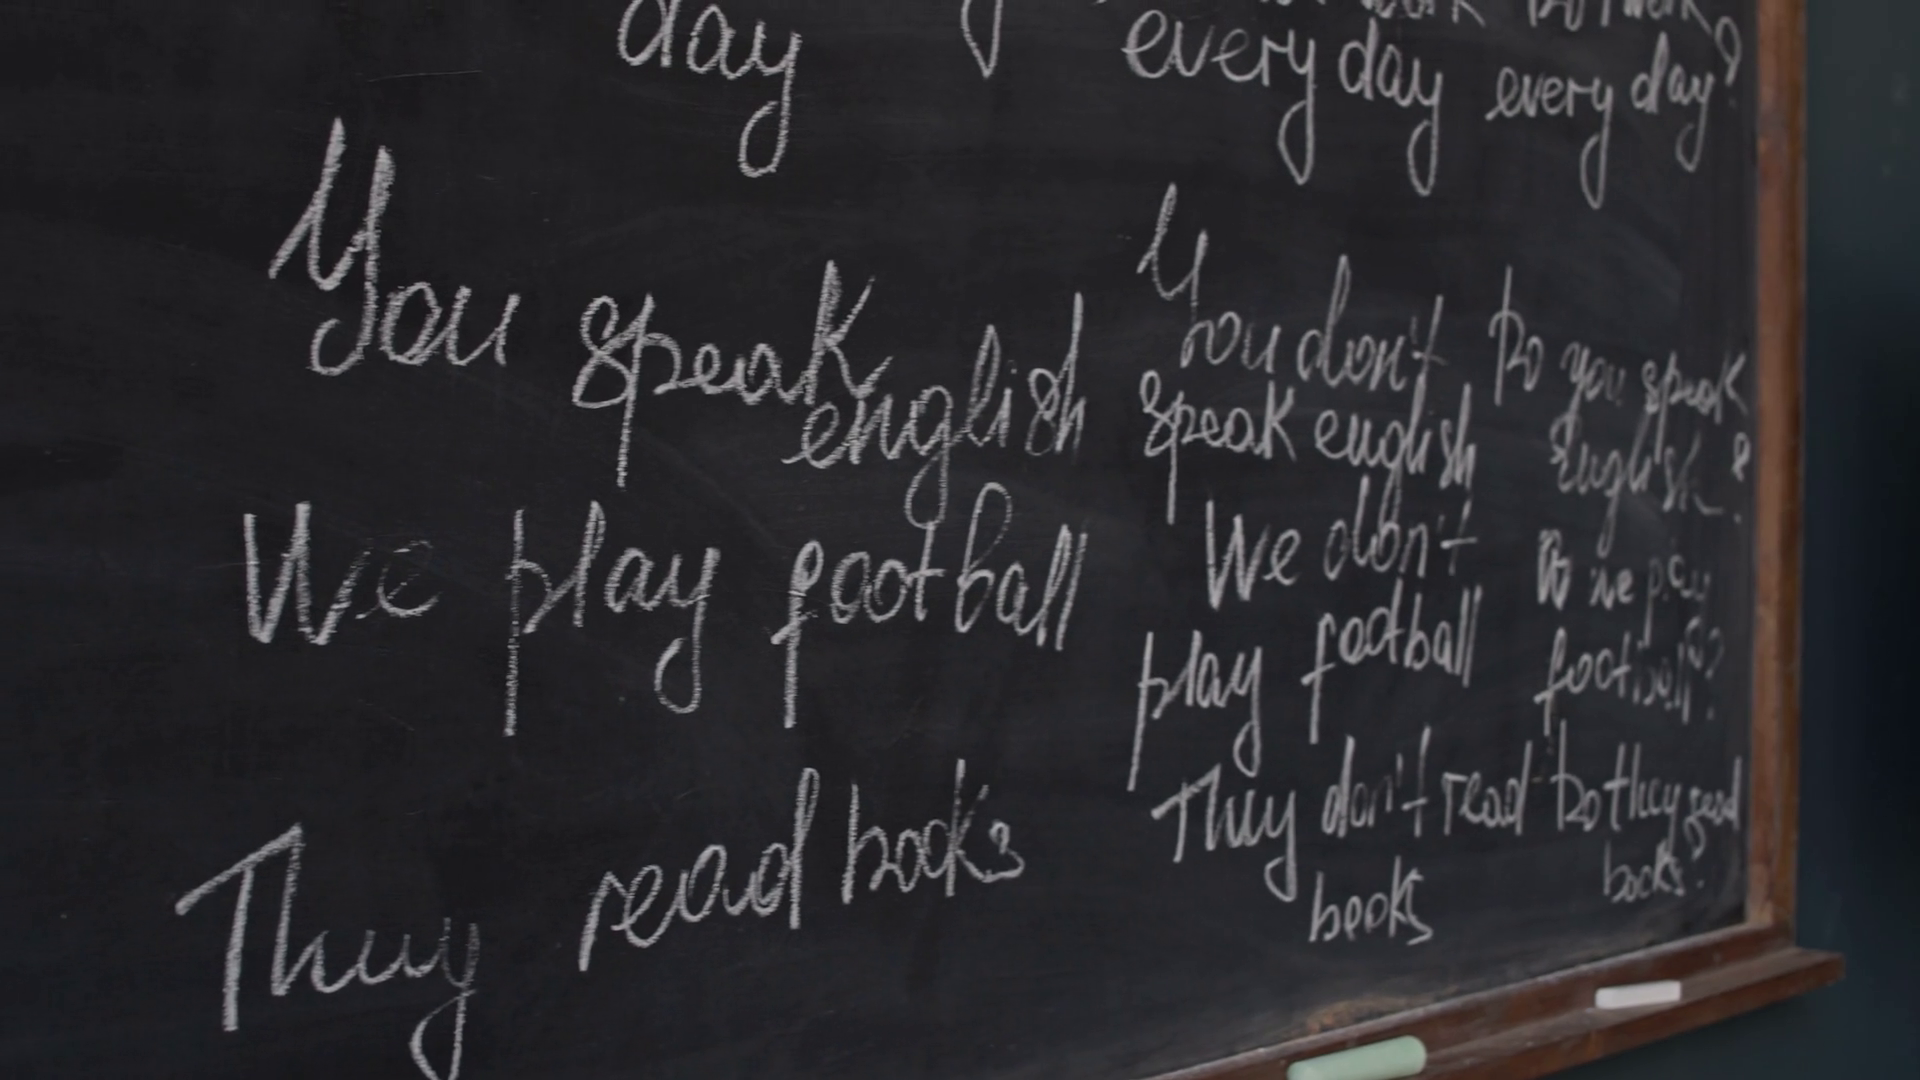 day every day every day?
You speak english
You don't speak english
Do you speak english?
We play football
We don't play football
Do we play football?
They read books
They don't read books
Do they read books?